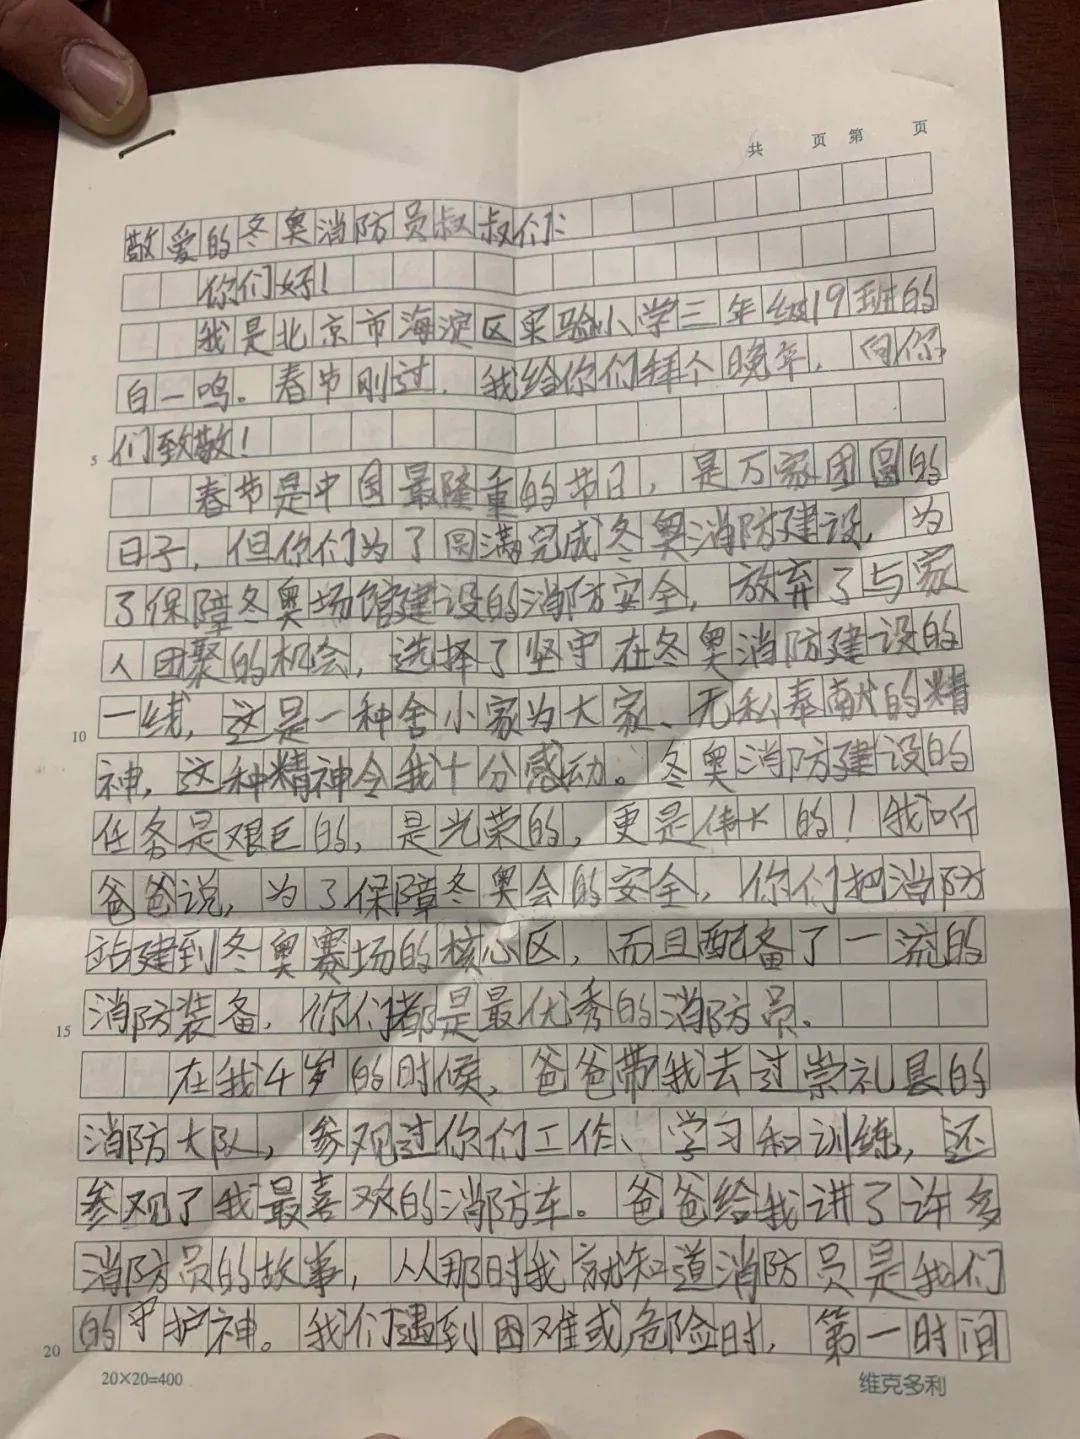 共 页 第 页
敬爱的冬奥消防员叔叔们:
你们好!
我是北京市海淀区实验小学三年级19班的
白一鸣。春节刚过,我给你们拜个晚年,向你
们致敬!
5
春节是中国最隆重的节日,是万家团圆的
日子,但你们为了圆满完成冬奥消防建设,为
了保障冬奥场馆建设的消防安全,放弃了与家
人团聚的机会,选择了坚守在冬奥消防建设的
一线,这是一种舍小家为大家、无私奉献的精
10
神,这种精神令我十分感动。冬奥消防建设的
任务是艰巨的,是光荣的,更是伟大的!我听
爸爸说,为了保障冬奥会的安全,你们把消防
站建到冬奥赛场的核心区,而且配备了一流的
消防装备,你们都是最优秀的消防员。
15
在我4岁的时候,爸爸带我去过崇礼县的
消防大队,参观过你们工作、学习和训练,还
参观了我最喜欢的消防车。爸爸给我讲了许多
消防员的故事,从那时我就知道消防员是我们
的守护神。我们遇到困难或危险时,第一时间
20
20×20=400
维克多利